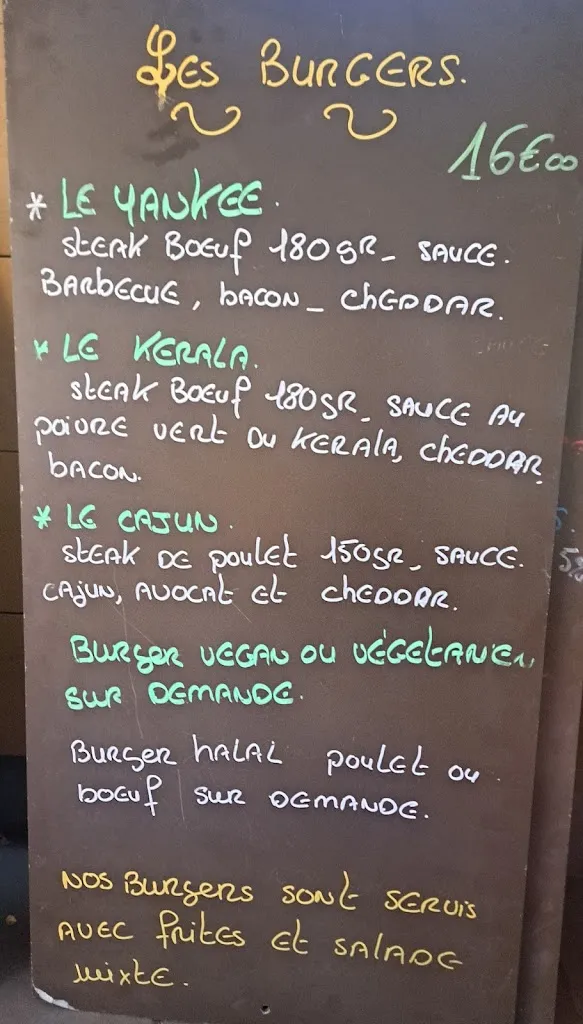 Les BURGERS.
16€00
* LE YANKEE.
STEAK BOEUF 180gR_ SAUCE.
BARBECUE, BACON_ CHEDDAR.
* LE KERALA.
STEAK BOEUF 180gR_ SAUCE AU
POIVRE VERT DU KERALA, CHEDDAR
BACON.
* LE CAJUN.
STEAK DE POULET 150gR_ SAUCE.
CAJUN, AVOCAT Et CHEDDAR.
BURGER VEGAN OU VÉGÉTARIEN
SUR DEMANDE.
BURGER HALAL POULET OU
BOEUF SUR DEMANDE.
NOS BURGERS SONT SERVIS
AVEC FRITES Et SALADE
MIXTE.